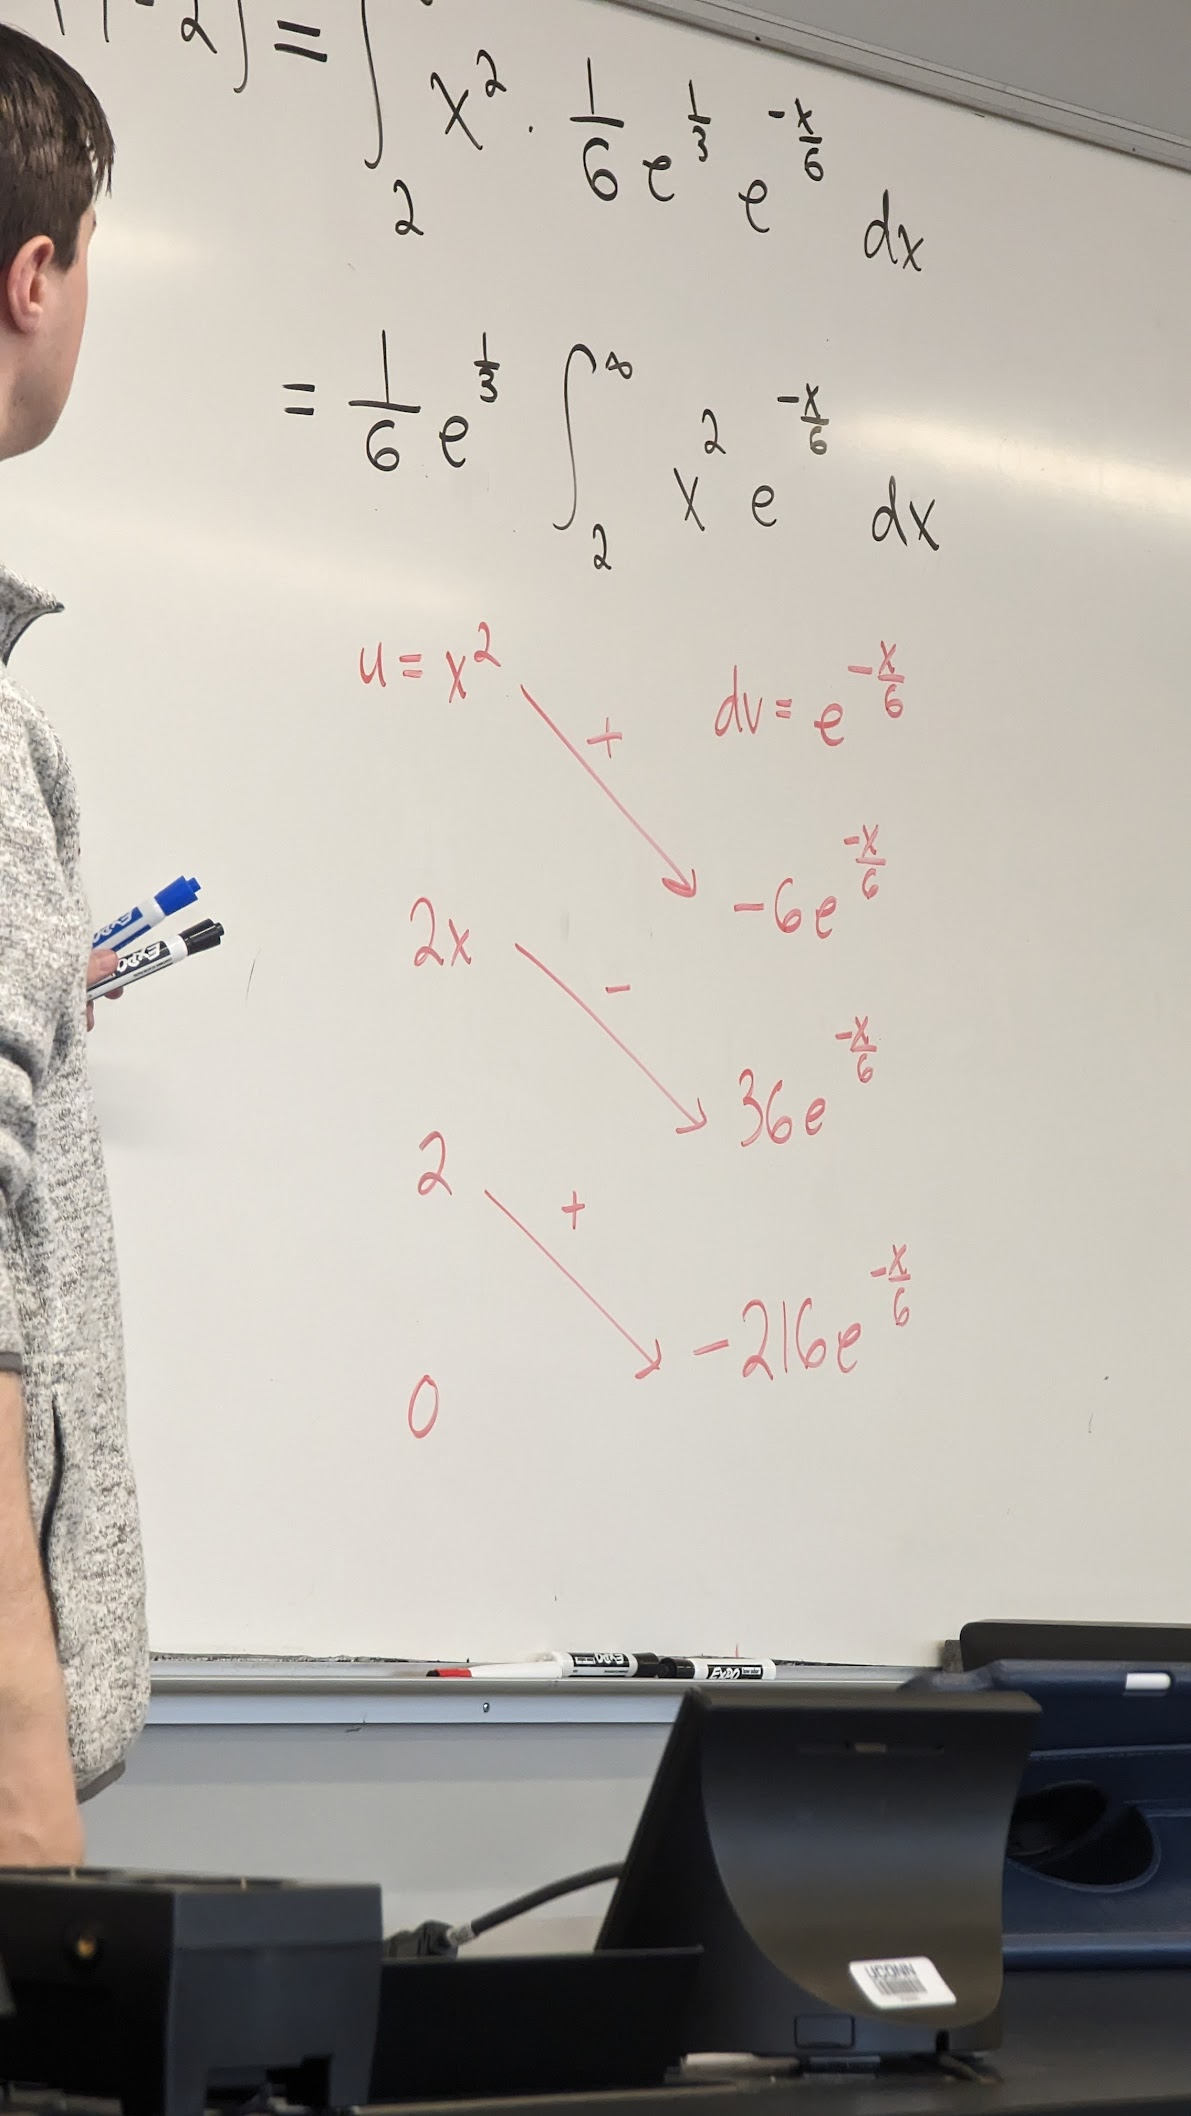 2] = ∫₂ x² · 1/6 e^(1/3) e^(-x/6) dx
= 1/6 e^(1/3) ∫₂^∞ x² e^(-x/6) dx
u = x² + dv = e^(-x/6)
-6e^(-x/6)
2x -
36e^(-x/6)
2 +
-216e^(-x/6)
0
EXPO
EXPO
EXPO
EXPO
UCONN